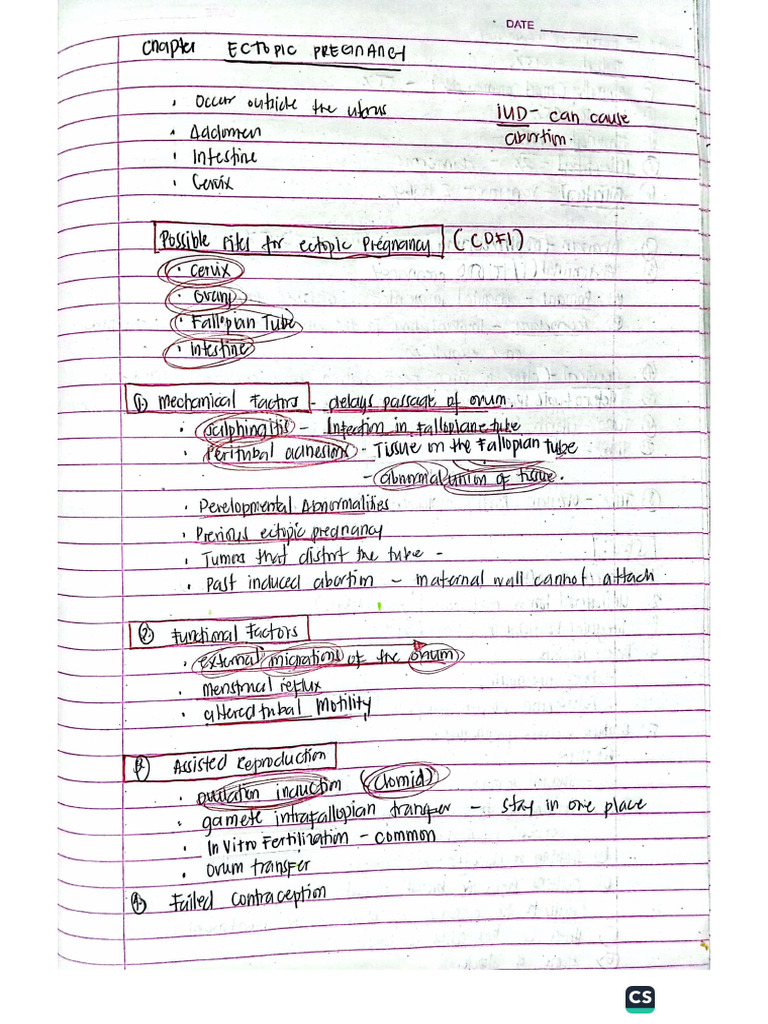 DATE
Chapter ECTOPIC PREGNANCY
• Occur outside the utrus
IUD - can cause
abortion.
• Addomen
• Intestine
• Cervix
Possible sites for ectopic Pregnancy (CDFI)
• Cervix
• Ovary
• Fallopian Tube
• Intestine
1) Mechanical Factors - delays passage of ovum.
• Salphingitis - Infection in falloplane tube
• Peritubal adhesions - Tissue on the Fallopian tube
- abnormal union of tissue.
• Developmental Abnormalities
• Previous ectopic pregnancy
• Tumors that distort the tube -
• Past induced abortion - maternal wall cannot attach
2. Functional Factors
• external migrations of the ovum
• Menstrual reflux
• altered tubal Motility
3) Assisted Reproduction
• ovulation induction (Clomid)
• gamete intrafallopian transfer - stay in one place
• In Vitro Fertilization - common
• Ovum transfer
4) Failed contraception
CS